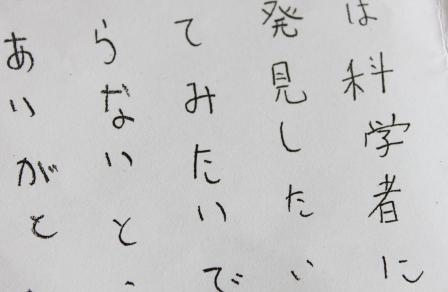 は科学者に
発見したい
てみたいで
らないと
ありがと